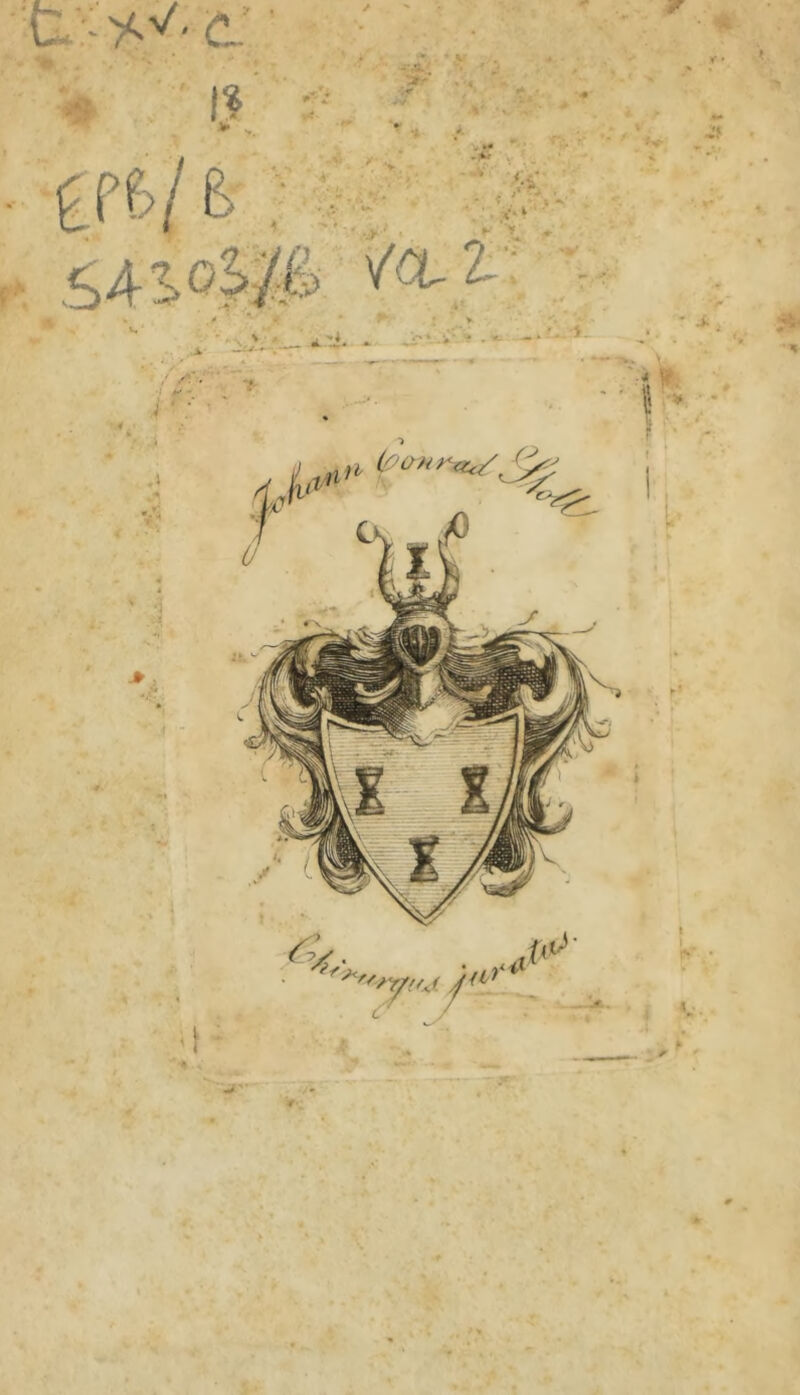 E. XV. c
18
EPB/B
54303/B Vol 2
Johann Conrad
Chirurgus juratus.